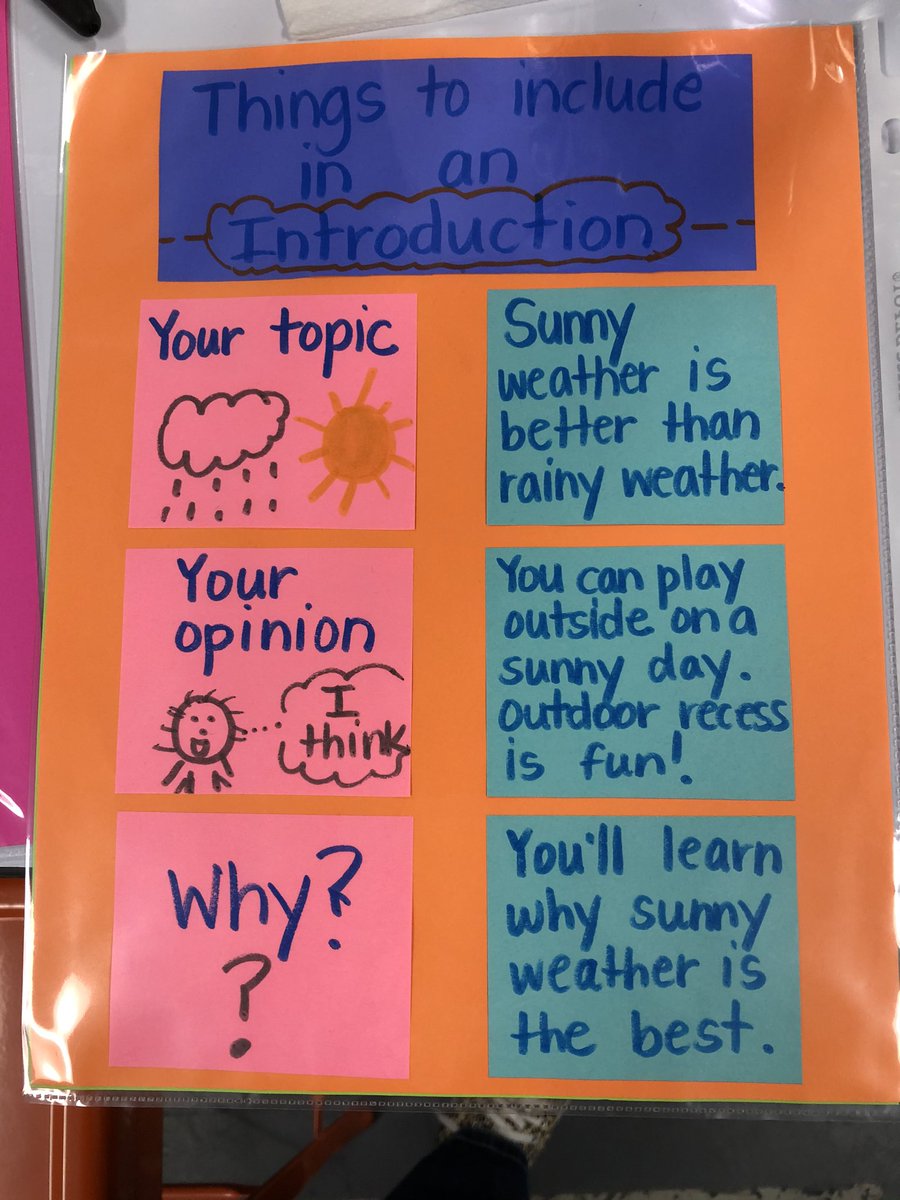 Things to include
in an
Introduction
Your topic
Sunny
weather is
better than
rainy weather.
Your
opinion
I
think
You can play
outside on a
sunny day.
Outdoor recess
is fun!
Why?
?
You'll learn
why sunny
weather is
the best.